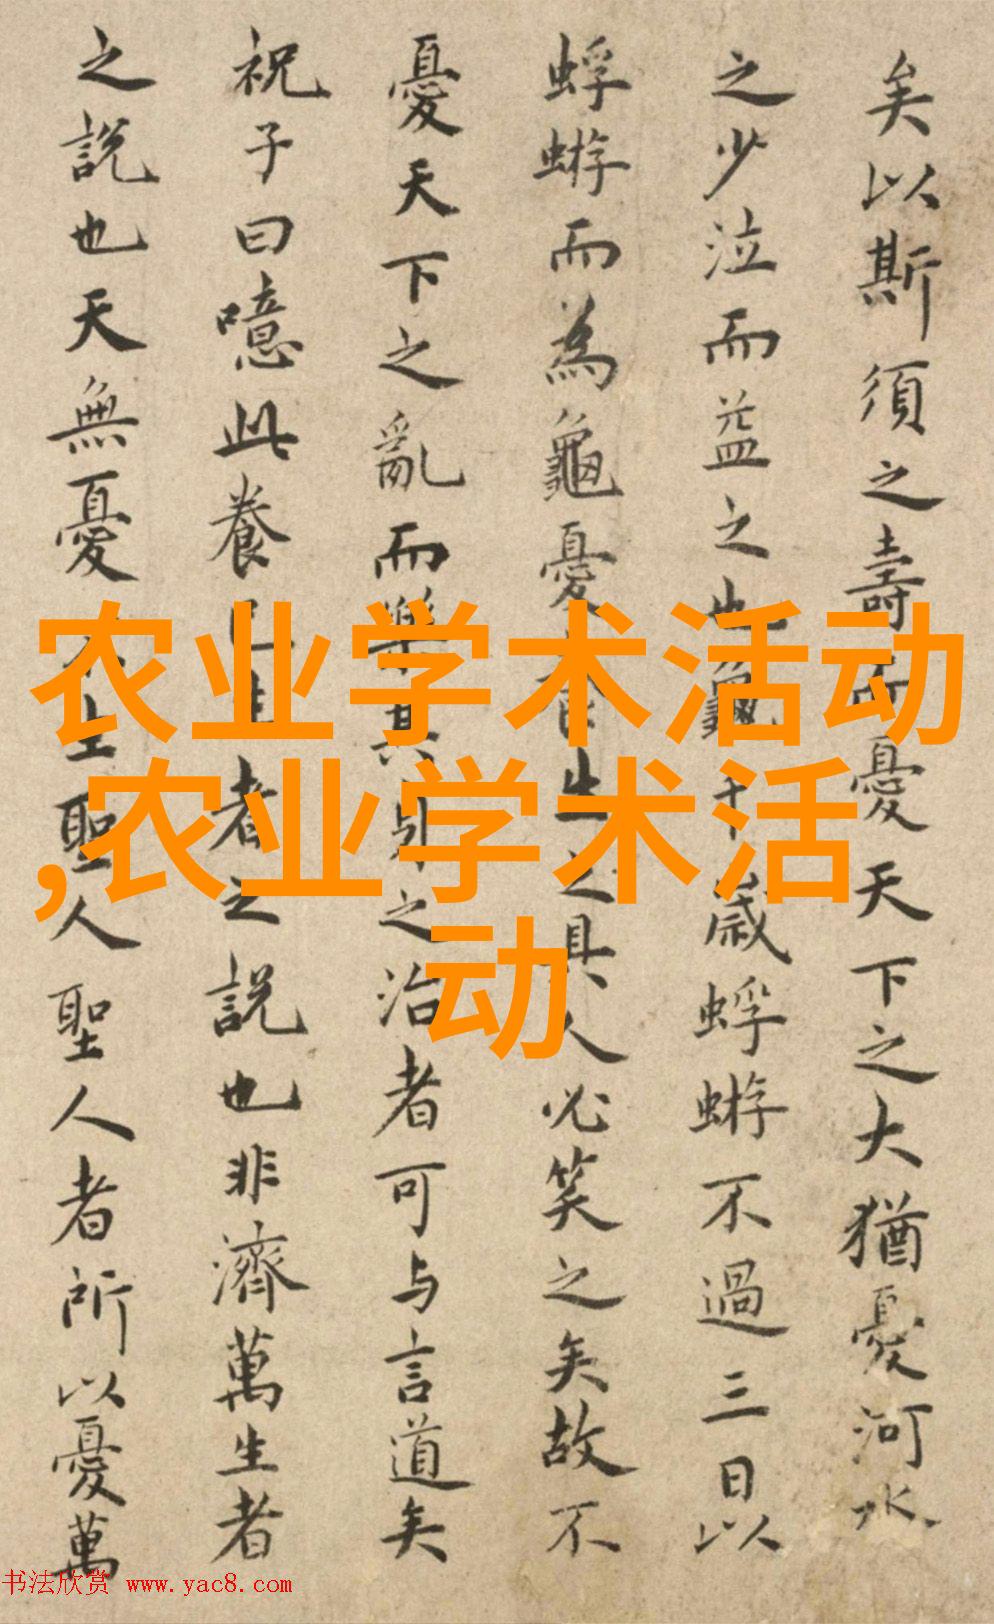 矣以斯須之壽而憂天下之大猶憂河水
之少泣而益之也龜千歲蜉蝣不過三日以
蜉蝣而為龜憂養生之具人必笑之矣故不
憂天下之亂而樂其身之治者可与言道矣
祝子曰噫此養己生者之説也非濟萬生者
之説也天無憂生聖人聖人者所以憂萬
农业学术活动
,农业学术活
动
书法欣赏 www.yac8.com